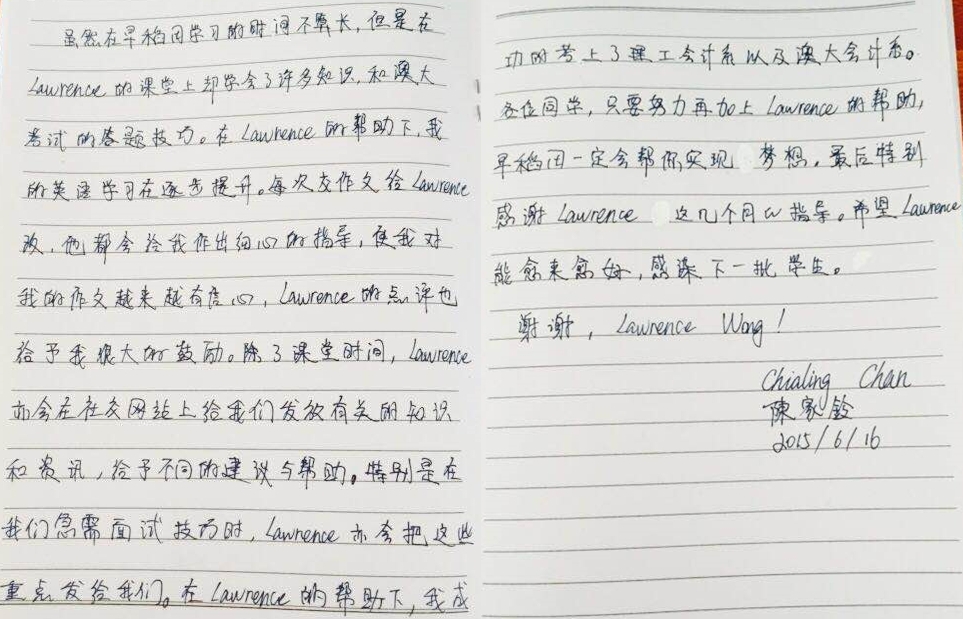 虽然在早稻田学习的时间不算长，但是在
Lawrence 的课堂上却学会了许多知识，和澳大
考试的答题技巧。在 Lawrence 的帮助下，我
的英语学习在逐步提升。每次交作文给 Lawrence
改，他都会给我作出细心的指导，使我对
我的作文越来越有信心，Lawrence 的点评也
给予我很大的鼓励。除了课堂时间，Lawrence
亦会在社交网站上给我们发放有关的知识
和资讯，给予不同的建议与帮助。特别是在
我们急需面试技巧时，Lawrence 亦会把这些
重点发给我们。在 Lawrence 的帮助下，我成
功的考上了理工会计系以及澳大会计系。
各位同学，只要努力再加上 Lawrence 的帮助，
早稻田一定会帮你实现梦想。最后特别
感谢 Lawrence 这几个月的指导。希望 Lawrence
能愈来愈好，感染下一批学生。
谢谢，Lawrence Wong！
Chialing Chan
陳家鈴
2015/6/16